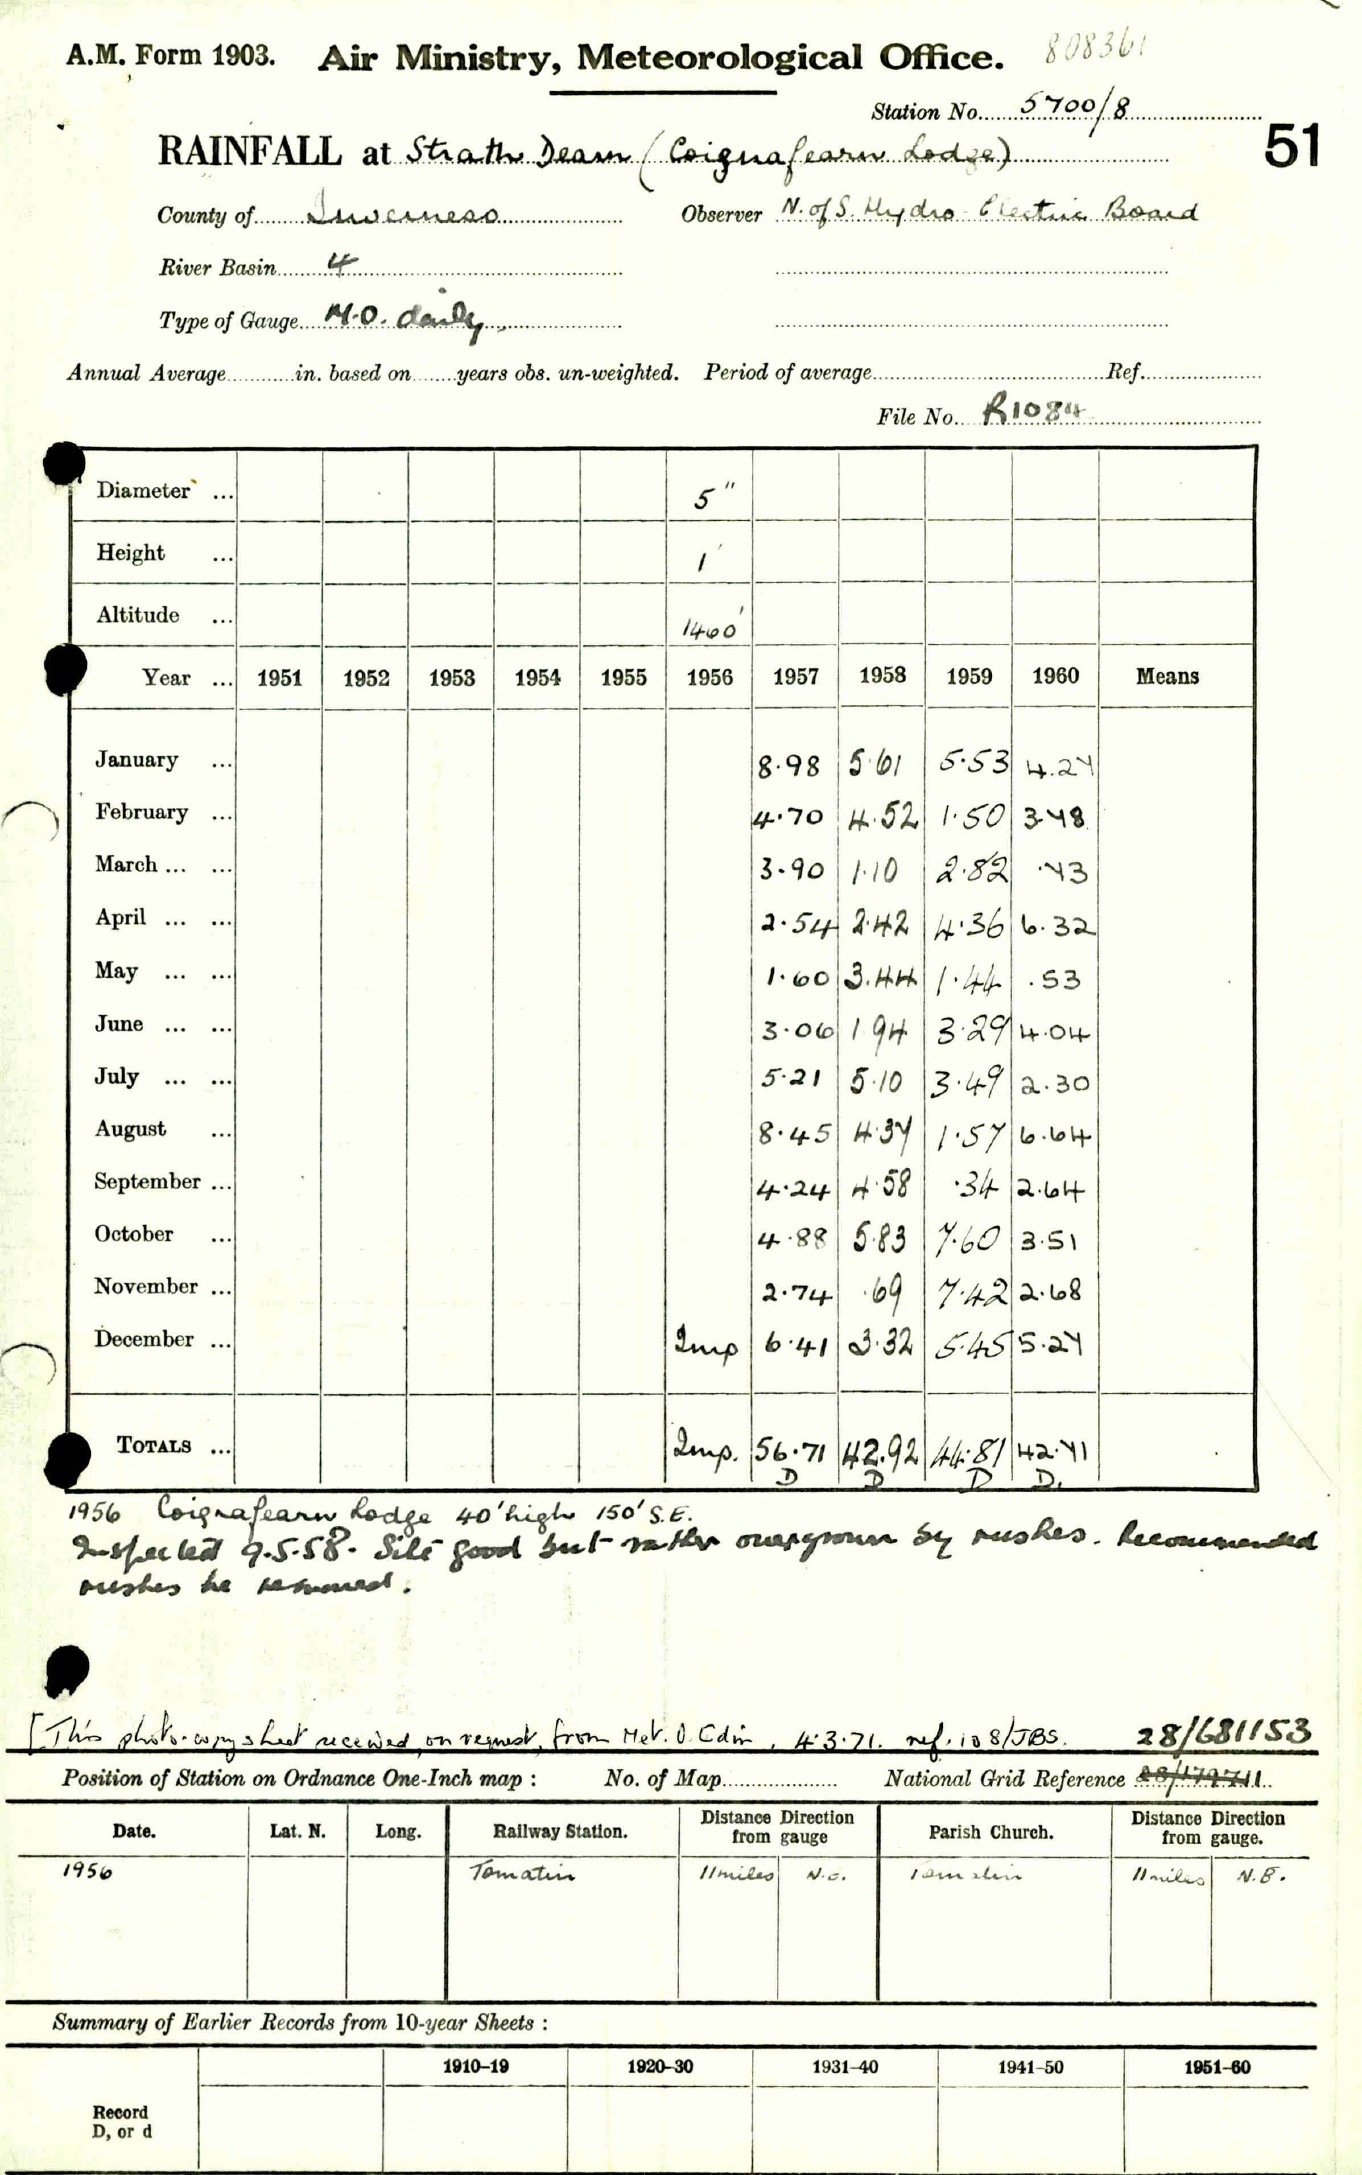 A.M. Form 1903. Air Ministry, Meteorological Office. 808361
Station No. 5700/8
51
RAINFALL at Strath Dearn (Coignafearn Lodge)
County of Inverness Observer N. of S. Hydro-Electric Board
River Basin 4
Type of Gauge M.O. daily
Annual Average in. based on years obs. un-weighted. Period of average Ref.
File No. R1084
Diameter ... 5"
Height ... 1'
Altitude ... 1460'
Year ... 1951 1952 1953 1954 1955 1956 1957 1958 1959 1960 Means
January ... 8.98 5.61 5.53 4.27
February ... 4.70 4.52 1.50 3.78
March ... ... 3.90 1.10 2.82 .73
April ... ... 2.54 2.42 4.36 6.32
May ... ... 1.60 3.44 1.44 .53
June ... ... 3.06 1.94 3.29 4.04
July ... ... 5.21 5.10 3.49 2.30
August ... 8.45 4.37 1.57 6.64
September ... 4.24 4.58 .34 2.64
October ... 4.88 5.83 7.60 3.51
November ... 2.74 .69 7.42 2.68
December ... Imp 6.41 3.32 5.45 5.27
TOTALS ... Imp. 56.71 42.92 44.81 42.71
D D D D.
1956 Coignafearn Lodge 40' high 150' S.E.
Inspected 9.5.58. Site good but rather overgrown by rushes. Recommended
rushes be removed.
[This photo-copy sheet received, on request, from Met. O. Edin, 4.3.71. ref. 108/JBS. 28/681153
Position of Station on Ordnance One-Inch map : No. of Map National Grid Reference
Date. Lat. N. Long. Railway Station. Distance from Direction gauge Parish Church. Distance from Direction gauge.
1956 Tomatin 11 miles N.E. Tomatin 11 miles N.E.
Summary of Earlier Records from 10-year Sheets :
1910–19 1920–30 1931–40 1941–50 1951–60
Record
D, or d